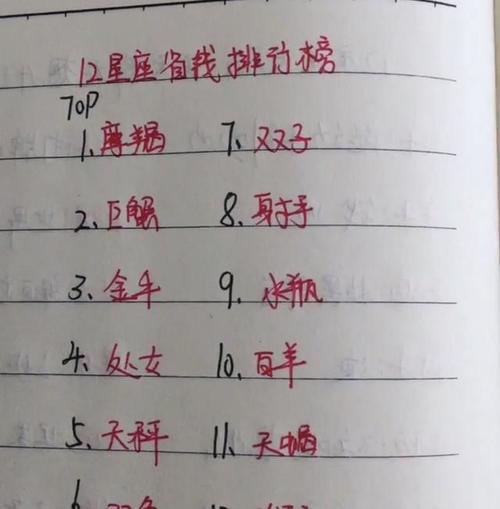 12星座省钱排行榜
TOP
1、摩羯 7、双子
2、巨蟹 8、射手
3、金牛 9、水瓶
4、处女 10、百羊
5、天秤 11、天蝎